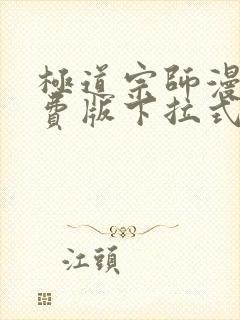 極道宗師漫
費版下拉式
江頭